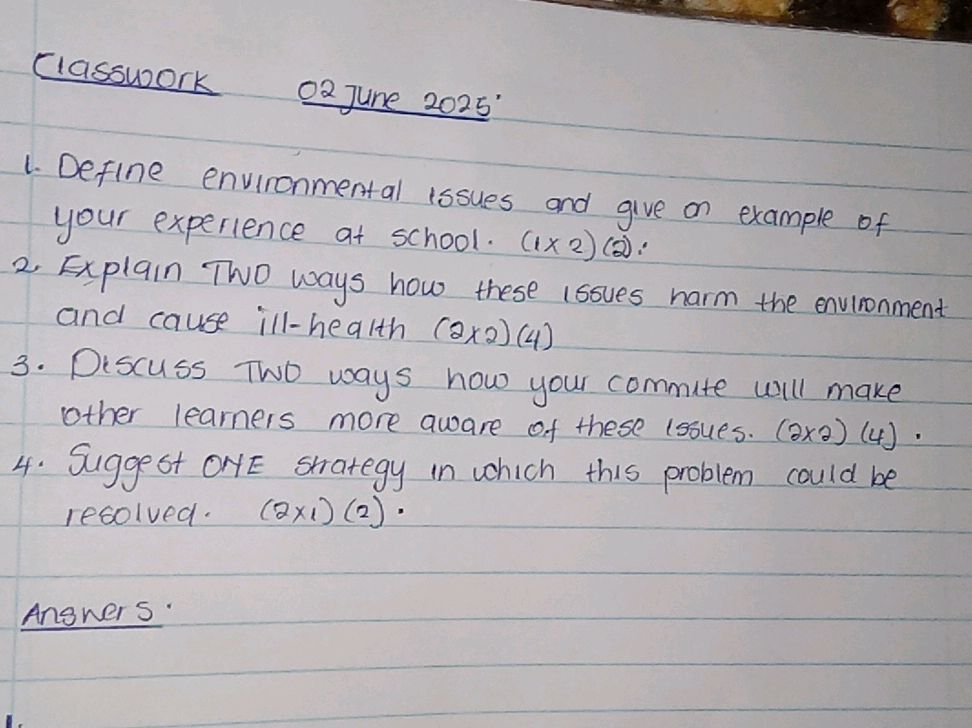 Classwork 02 June 2025
1. Define environmental issues and give an example of
your experience at school. (1x2)(2).
2. Explain TWO ways how these issues harm the environment
and cause ill-health (2x2)(4)
3. Discuss TWO ways how your commite will make
other learners more aware of these issues. (2x2)(4).
4. Suggest ONE strategy in which this problem could be
resolved. (2x1)(2).
Answers.
1.